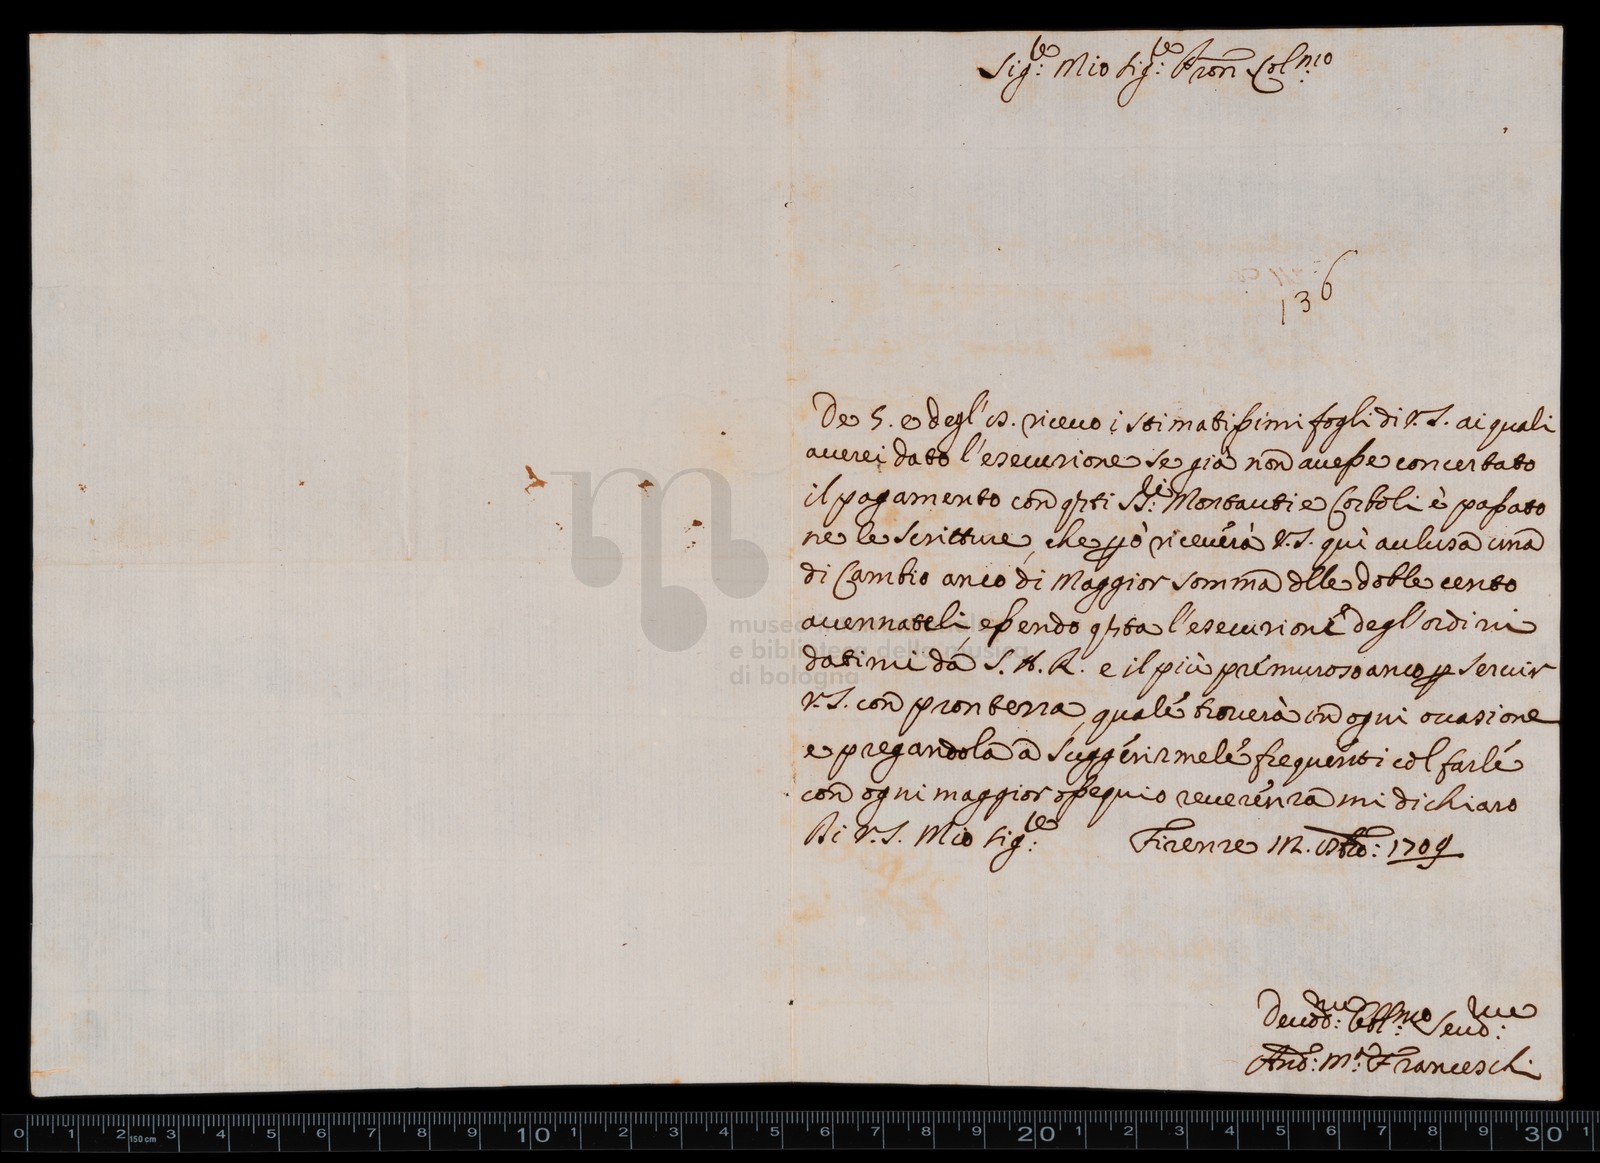 Sig:re Mio Sig:re Pron Col:mo
136
De 5. e degl' 8. riceuo i stimatissimi fogli di V.S. ai quali
auerei dato l'esecuzione se già non auesse concertato
il pagamento con qsti SS:ri Montauti e Corboli è passato
ne le scritture, che pò riceuerà V.S. qui aclusa una
di Cambio anco di Maggior somma dlle doble cento
auennateli, essendo qsta l'esecuzione degl'ordini
datimi da S.A.R. e il più premuroso anco p seruir
V.S. con prontezza, quale trouerà in ogni occasione
e pregandola a suggerirmele frequenti col farle
con ogni maggior ossequio reuerenza mi dichiaro
Di V.S. Mio Sig:re Firenze 12. 1709
Deuo:mo Obl:mo Seruo:re
And: M:a Franceschi
museo
e biblioteca della musica
di bologna
0 1 2 150 cm 3 4 5 6 7 8 9 10 1 2 3 4 5 6 7 8 9 20 1 2 3 4 5 6 7 8 9 30 1